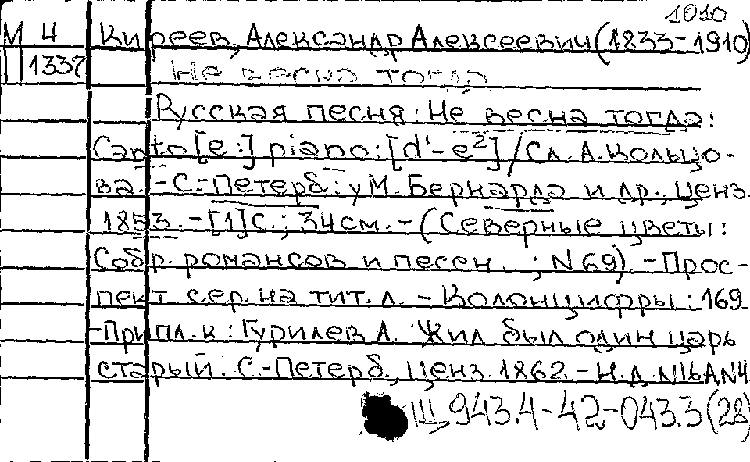 1010
М Ч Киреев, Александр Алексеевич (1833-1910)
1337 Не весна тогда
Русская песня: Не весна тогда:
Canto [e:] piano: [d'-e²] / Сл. А. Кольцо-
ва. - С.-Петерб.: у М. Бернарда и др., ценз.
1853. - [1] с.; 34 см. - (Северные цветы:
Собр. романсов и песен...; N 69). - Прос-
пект сер. на тит. л. - Колонцифры: 169
- Припл. к: Гурилев А. Жил был один царь
старый. С.-Петерб., ценз. 1862. - Н.д.
943.4-42-043.3 (28)